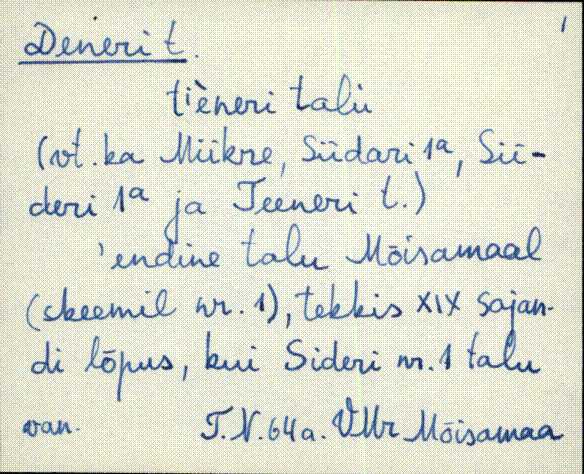 1
Deneri t.
tièneri talu
(vt. ka Miikre, Siidari 1a, Sii-
deri 1a ja Teeneri t.)
'endine talu Mõisamaal
(skeemil nr. 1), tekkis XIX sajan-
di lõpus, kui Sideri nr. 1 talu
van. T.N. 64 a. VMr Mõisamaa